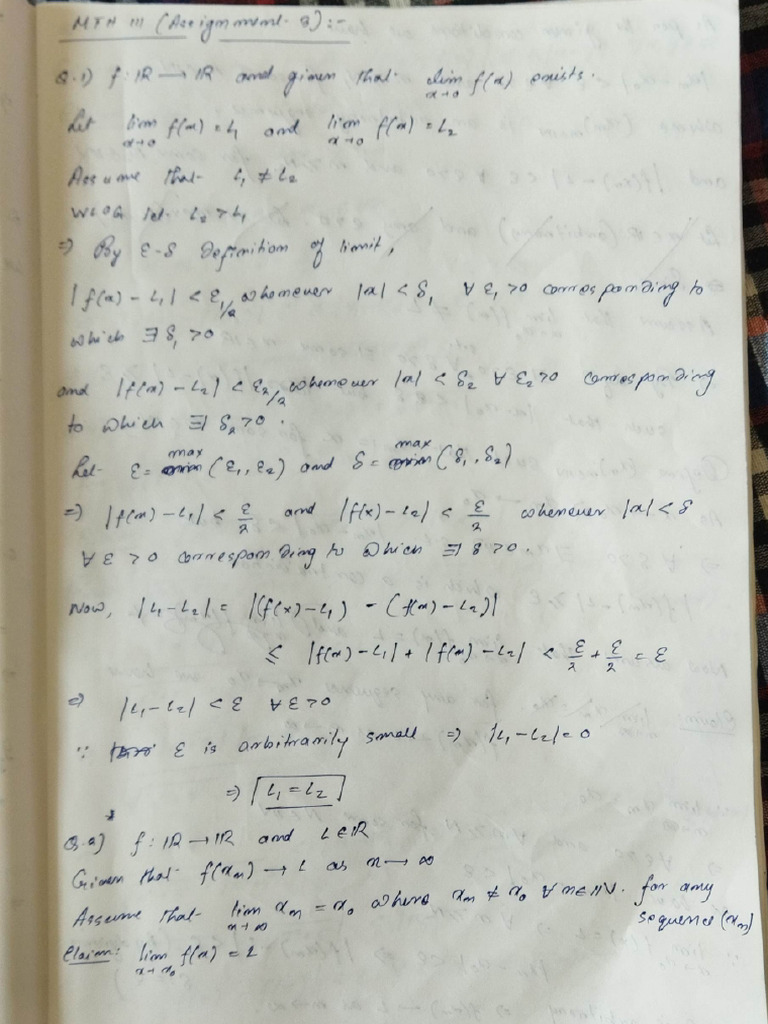 MTH 111 (Assignment-3):-
Q.1) f: IR → IR and given that lim x→0 f(x) exists.
Let lim x→0 f(x) = L1 and lim x→0 f(x) = L2
Assume that L1 ≠ L2
WLOG let L2 > L1
⇒ By ε-δ Definition of limit,
|f(x) - L1| < ε1/2 whenever |x| < δ1 ∀ ε1 > 0 corresponding to
which ∃ δ1 > 0
and |f(x) - L2| < ε2/2 whenever |x| < δ2 ∀ ε2 > 0 corresponding
to which ∃ δ2 > 0.
Let ε = max (ε1, ε2) and δ = max (δ1, δ2)
⇒ |f(x) - L1| < ε/2 and |f(x) - L2| < ε/2 whenever |x| < δ
∀ ε > 0 corresponding to which ∃ δ > 0.
Now, |L1 - L2| = |(f(x) - L1) - (f(x) - L2)|
≤ |f(x) - L1| + |f(x) - L2| < ε/2 + ε/2 = ε
⇒ |L1 - L2| < ε ∀ ε > 0
∵ ε is arbitrarily small ⇒ |L1 - L2| = 0
⇒ L1 = L2
Q.2) f: IR → IR and L ∈ IR
Given that f(xn) → L as n → ∞
Assume that lim n→∞ xn = x0 where xn ≠ x0 ∀ n ∈ IN. for any
sequence (xn)
Claim: lim x→x0 f(x) = L